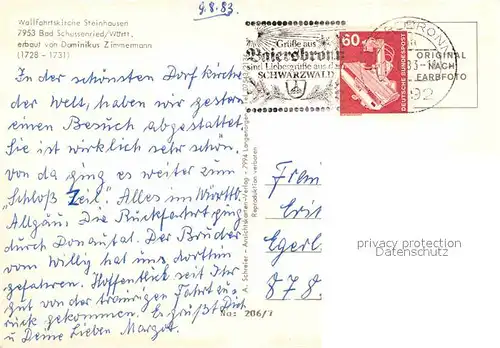 9.8.83
Wallfahrtskirche Steinhausen
7953 Bad Schussenried/Württ.
erbaut von Dominikus Zimmermann
(1728 - 1731)
Grüße aus
Baiersbronn
sind Liebesgrüße aus dem
SCHWARZWALD
60
DEUTSCHE BUNDESPOST
BRONN
ORIGINAL
83-
NACH
FARBFOTO
92
In der schönsten Dorfkirche
der Welt, haben wir gestern
einen Besuch abgestattet
Sie ist wirklich sehr schön.
von da ging es weiter zum
"Schloß Zeil". Alles im Württb.
Allgäu. Die Rückfahrt ging
durch Donautal. Der Bruder
vom Willy hat uns dorthin
gefahren. Hoffentlich seit Ihr
gut von der traurigen Fahrt zu-
rück gekommen. Es grüßt Dich
u Deine Lieben Margot.
A. Schreier - Ansichtskarten-Verlag - 7994 Langenargen
Reproduktion verboten
206/7
Frau
Egerl
878
privacy protection
Datenschutz